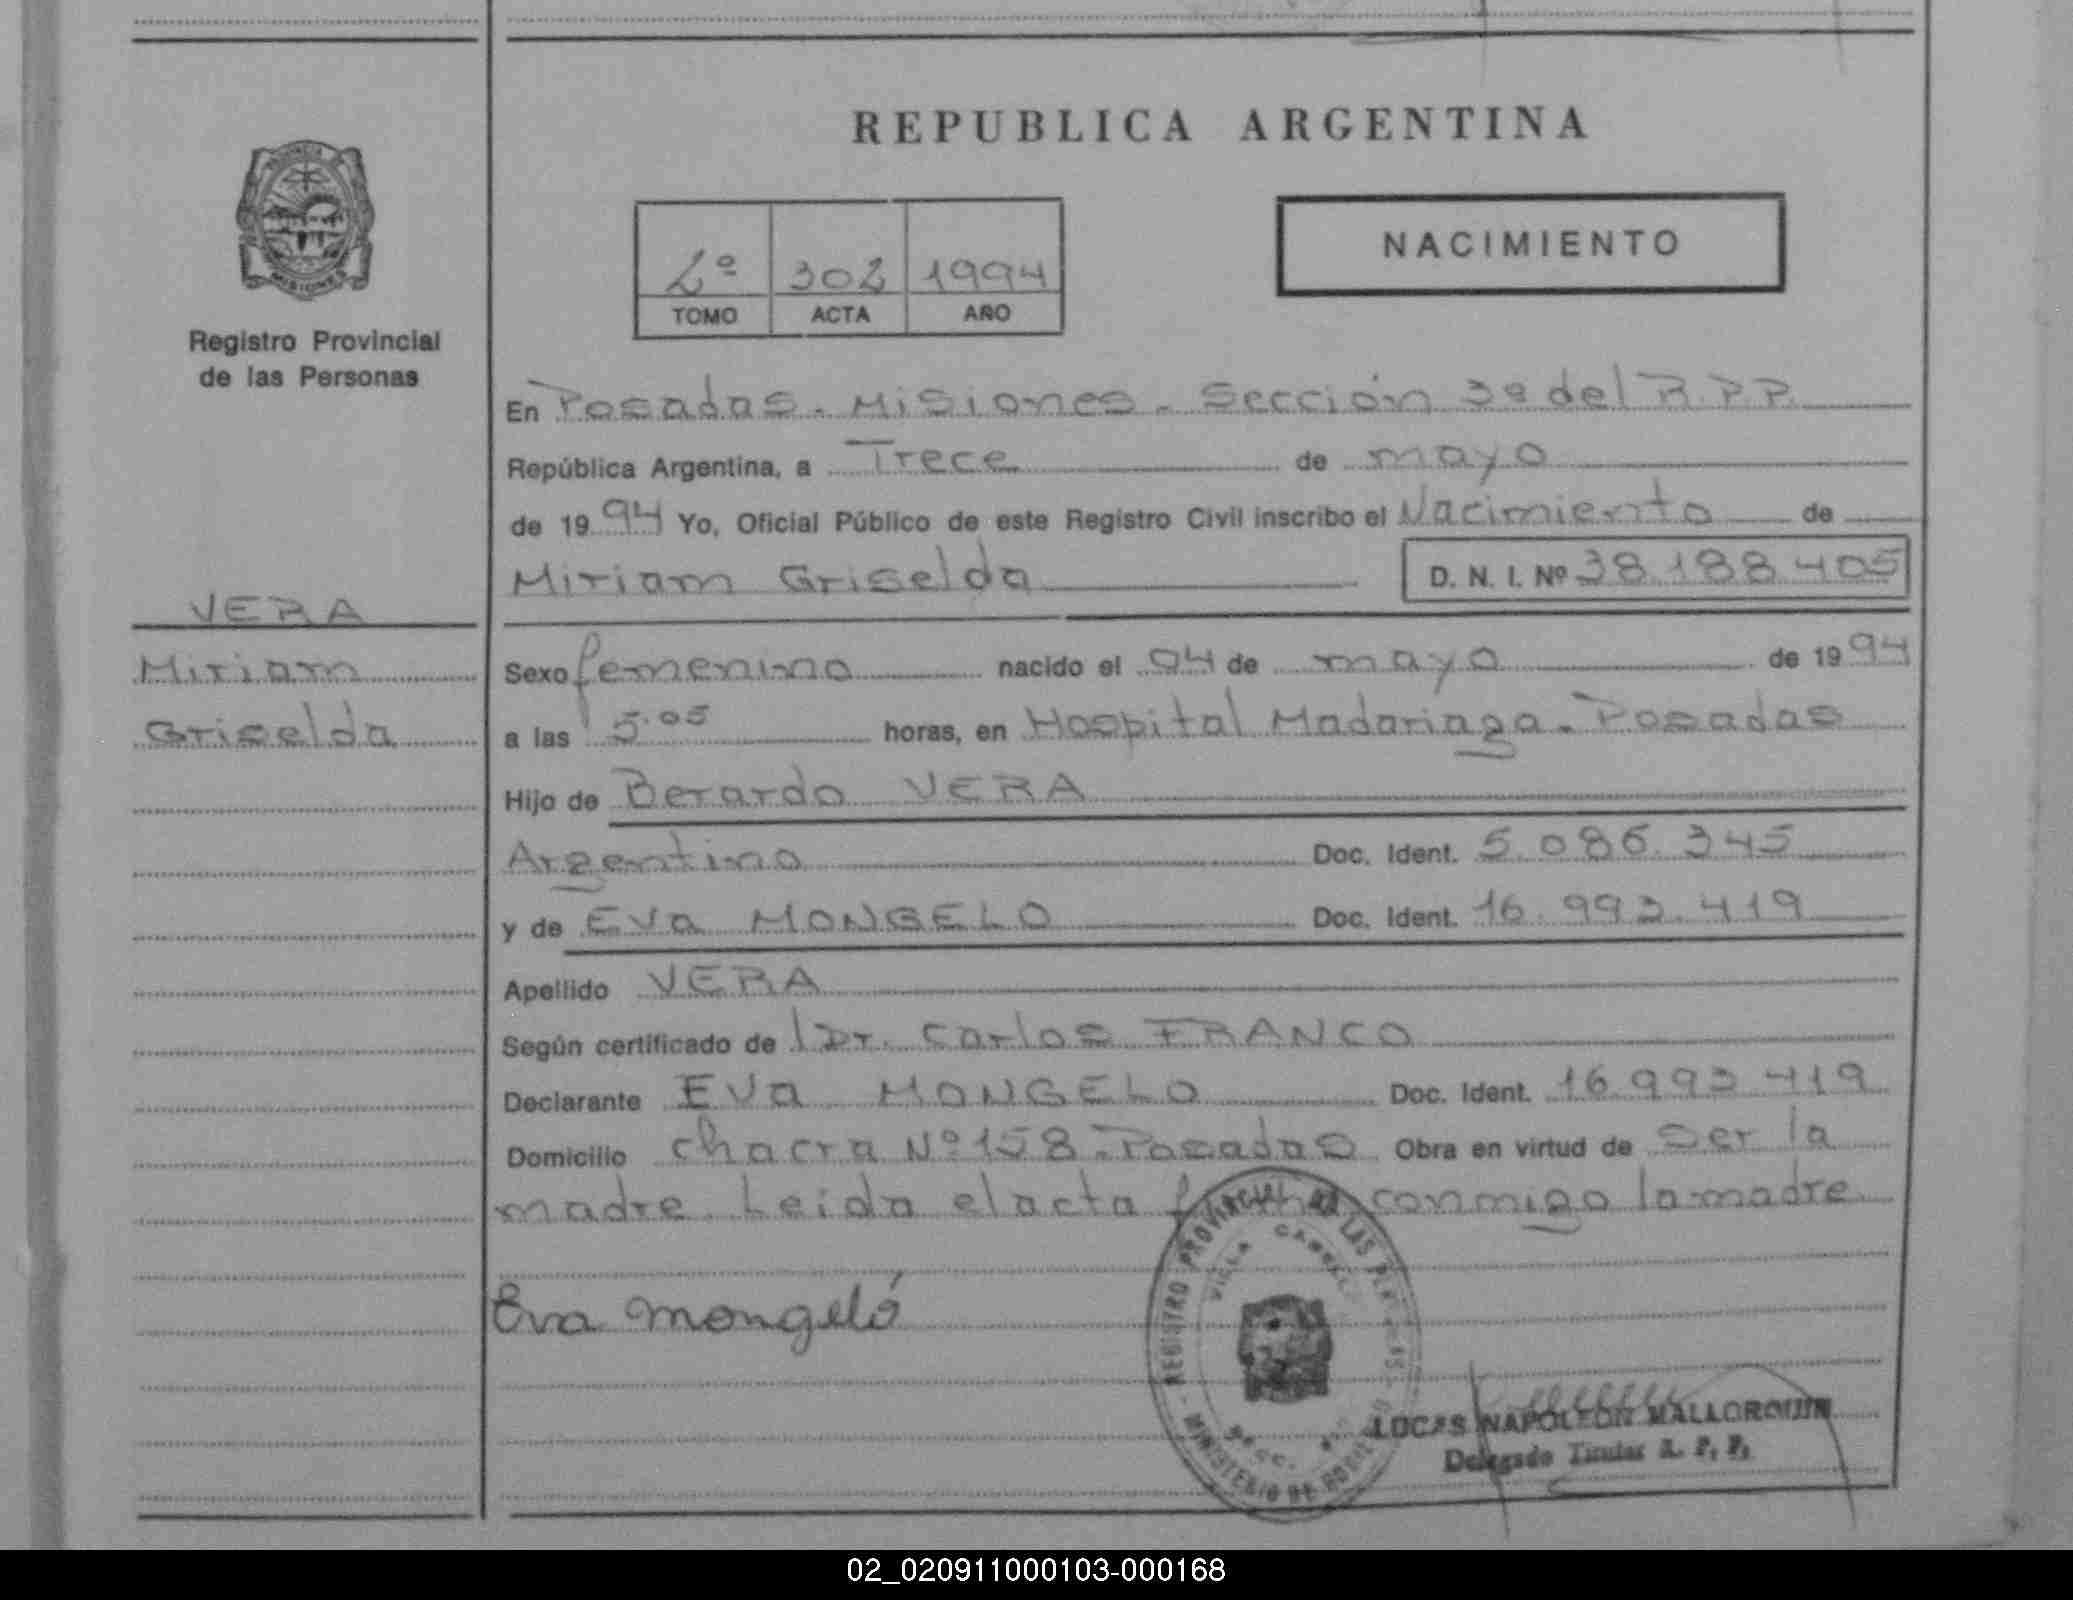 REPUBLICA ARGENTINA
PROVINCIA DE
MISIONES
Registro Provincial
de las Personas
2º 302 1994
TOMO ACTA AÑO
NACIMIENTO
En Posadas - Misiones - Sección 3ª del R.P.P.
República Argentina, a Trece de mayo
de 1994 Yo, Oficial Público de este Registro Civil inscribo el Nacimiento de
Miriam Griselda D. N. I. Nº 38.188.405
VERA
Miriam
Griselda
Sexo femenino nacido el 04 de mayo de 1994
a las 5.05 horas, en Hospital Madariaga - Posadas
Hijo de Berardo VERA
Argentino Doc. Ident. 5.086.345
y de Eva MONGELO Doc. Ident. 16.992.419
Apellido VERA
Según certificado de Dr. Carlos FRANCO
Declarante Eva MONGELO Doc. Ident. 16.992.419
Domicilio chacra Nº 158 - Posadas Obra en virtud de Ser la
madre. Leida el acta conmigo la madre.
Eva Mongeló
REGISTRO PROVINCIAL DE LAS PERSONAS
VILLA CABELLO
MINISTERIO DE GOBIERNO
LUCAS NAPOLEON MALLORQUIN
Delegado Titular R. P. P.
02_020911000103-000168